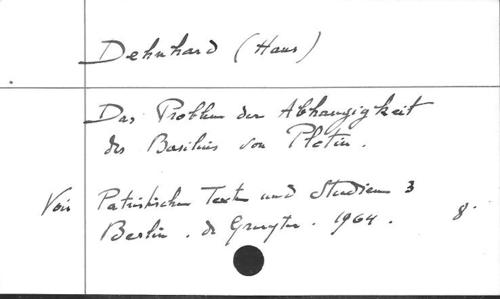 Dehnhard (Hans)
Das Problem der Abhangigkeit
des Basilius von Plotin.
Voir Patristischen Texte und Studien 3
Berlin. de Gruyter. 1964. 8°